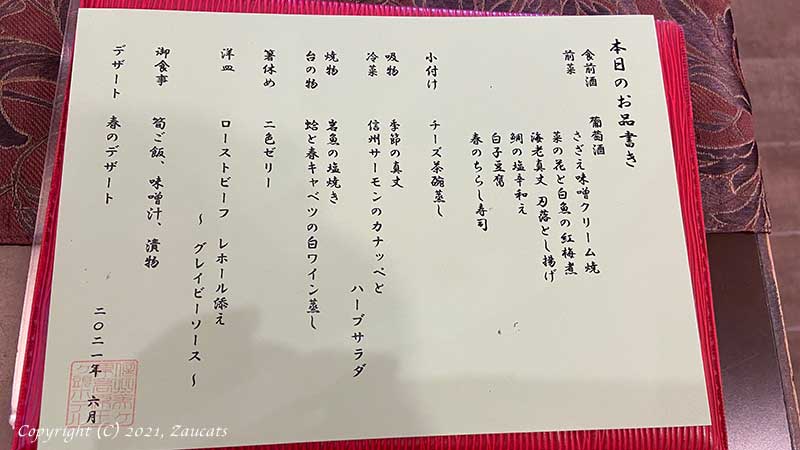 本日のお品書き
食前酒 葡萄酒
前菜 さざえ味噌クリーム焼
菜の花と白魚の紅梅煮
海老真丈 刃落とし揚げ
鯛の塩辛和え
白子豆腐
春のちらし寿司
小付け チーズ茶碗蒸し
吸物 季節の真丈
冷菜 信州サーモンのカナッペと
ハーブサラダ
焼物 岩魚の塩焼き
台の物 蛤と春キャベツの白ワイン蒸し
箸休め 二色ゼリー
洋皿 ローストビーフ レホール添え
～ グレイビーソース ～
御食事 筍ご飯、味噌汁、漬物
デザート 春のデザート
二〇二一年 六月
Copyright (C) 2021, Zaucats